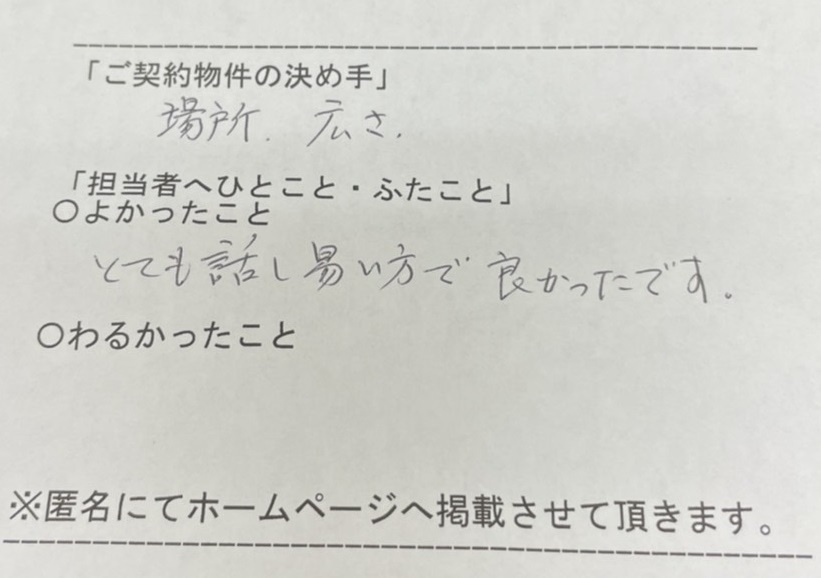 「ご契約物件の決め手」
場所. 広さ.
「担当者へひとこと・ふたこと」
○よかったこと
とても話し易い方で良かったです。
○わるかったこと
※匿名にてホームページへ掲載させて頂きます。